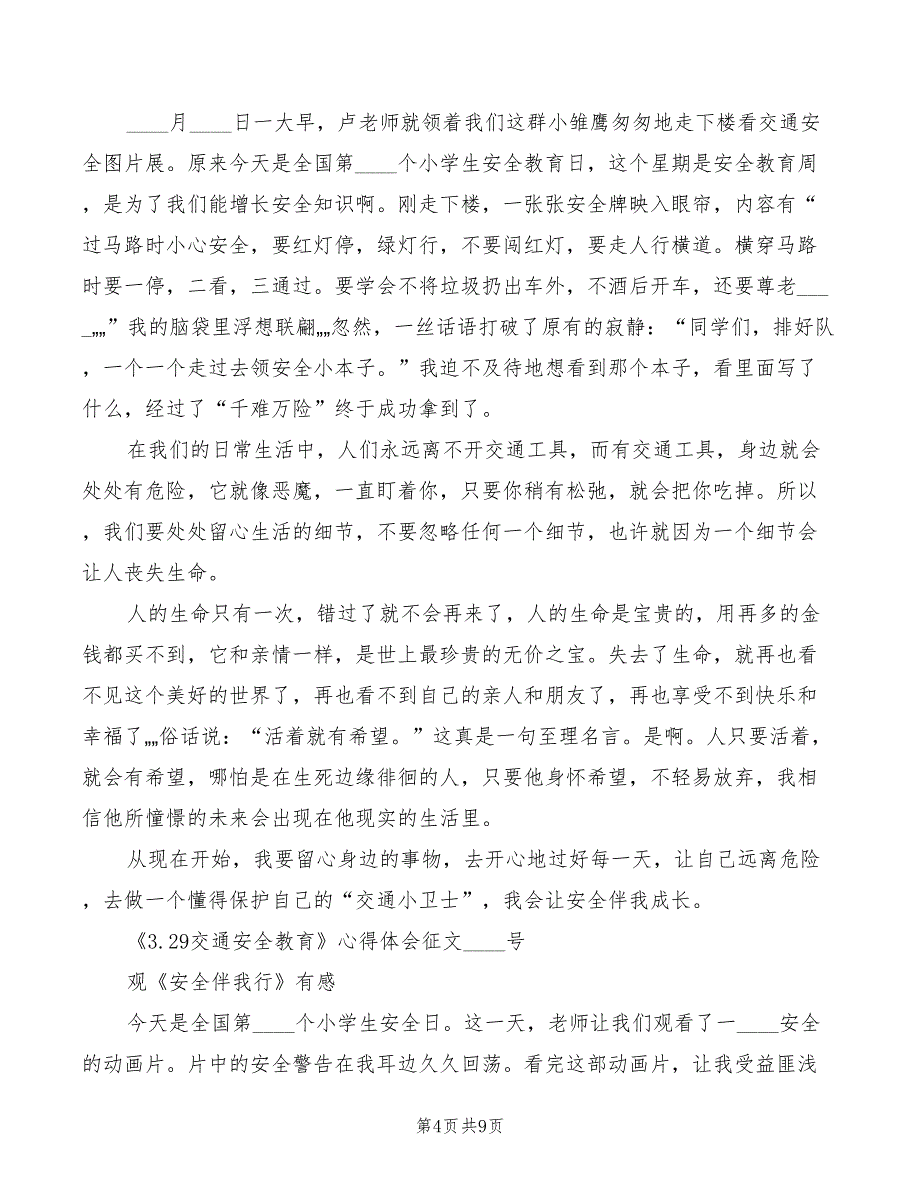 ____月____日一大早，卢老师就领着我们这群小雏鹰匆匆地走下楼看交通安
全图片展。原来今天是全国第____个小学生安全教育日，这个星期是安全教育周
，是为了我们能增长安全知识啊。刚走下楼，一张张安全牌映入眼帘，内容有“
过马路时小心安全，要红灯停，绿灯行，不要闯红灯，要走人行横道。横穿马路
时要一停，二看，三通过。要学会不将垃圾扔出车外，不酒后开车，还要尊老___
_„„”我的脑袋里浮想联翩„„忽然，一丝话语打破了原有的寂静：“同学们，排好队
，一个一个走过去领安全小本子。”我迫不及待地想看到那个本子，看里面写了
什么，经过了“千难万险”终于成功拿到了。
在我们的日常生活中，人们永远离不开交通工具，而有交通工具，身边就会
处处有危险，它就像恶魔，一直盯着你，只要你稍有松弛，就会把你吃掉。所以
，我们要处处留心生活的细节，不要忽略任何一个细节，也许就因为一个细节会
让人丧失生命。
人的生命只有一次，错过了就不会再来了，人的生命是宝贵的，用再多的金
钱都买不到，它和亲情一样，是世上最珍贵的无价之宝。失去了生命，就再也看
不见这个美好的世界了，再也看不到自己的亲人和朋友了，再也享受不到快乐和
幸福了„„俗话说：“活着就有希望。”这真是一句至理名言。是啊。人只要活着，
就会有希望，哪怕是在生死边缘徘徊的人，只要他身怀希望，不轻易放弃，我相
信他所憧憬的未来会出现在他现实的生活里。
从现在开始，我要留心身边的事物，去开心地过好每一天，让自己远离危险
，去做一个懂得保护自己的“交通小卫士”，我会让安全伴我成长。
《3.29交通安全教育》心得体会征文____号
观《安全伴我行》有感
今天是全国第____个小学生安全日。这一天，老师让我们观看了一____安全
的动画片。片中的安全警告在我耳边久久回荡。看完这部动画片，让我受益匪浅
第4页 共9页